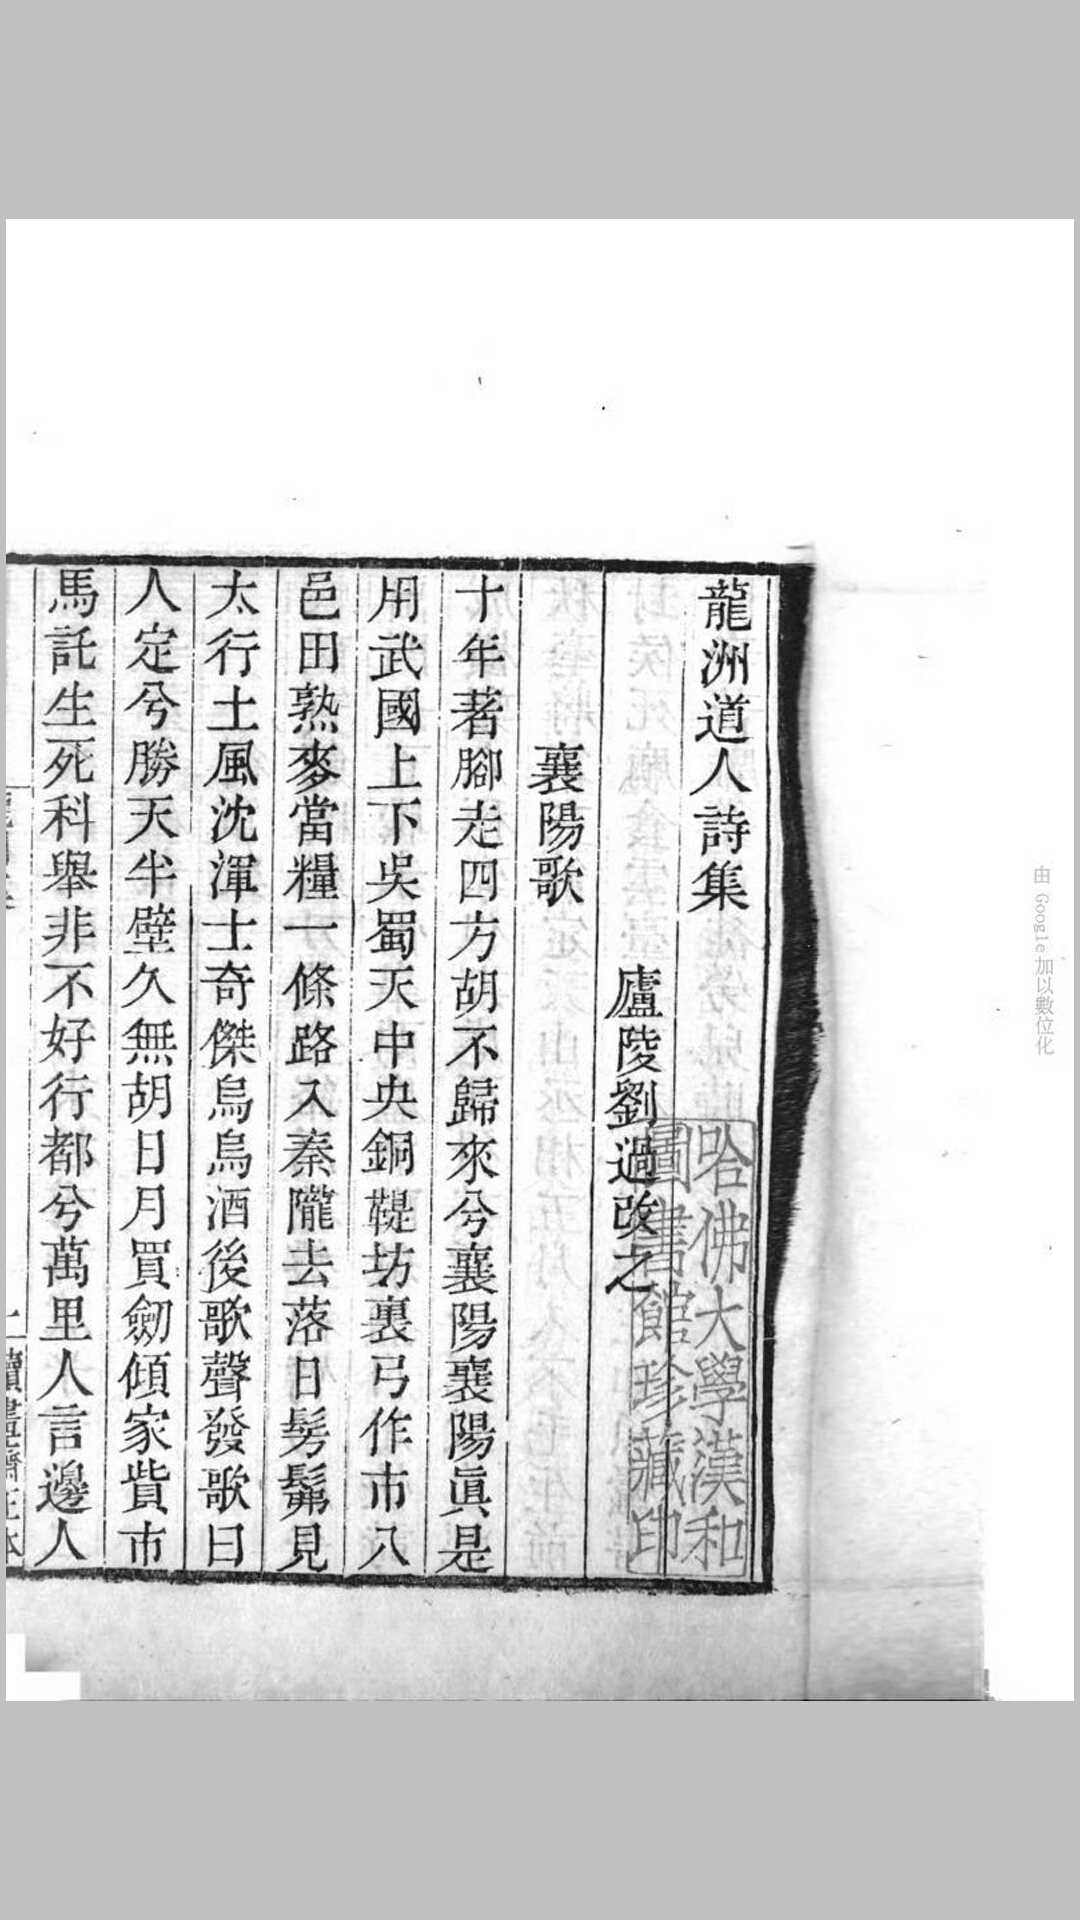 龍洲道人詩集
廬陵劉過改之
襄陽歌
十年著腳走四方胡不歸來兮襄陽襄陽眞是
用武國上下吳蜀天中央銅鞮坊裏弓作市八
邑田熟麥當糧一條路入秦隴去落日髣髴見
太行土風沈渾士奇傑烏烏酒後歌聲發歌曰
人定兮勝天半壁久無胡日月買劒傾家貲市
馬託生死科舉非不好行都兮萬里人言邊人
哈佛大學漢和
圖書館珍藏印
由 Google 加以數位化